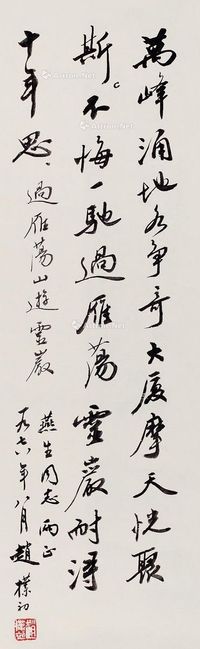 萬峰涌地各争奇大厦摩天恍聚
斯。不悔一馳過雁蕩靈巖耐得
十年思、過雁蕩山遊靈巖
燕生同志兩正
一九七六年八月趙樸初